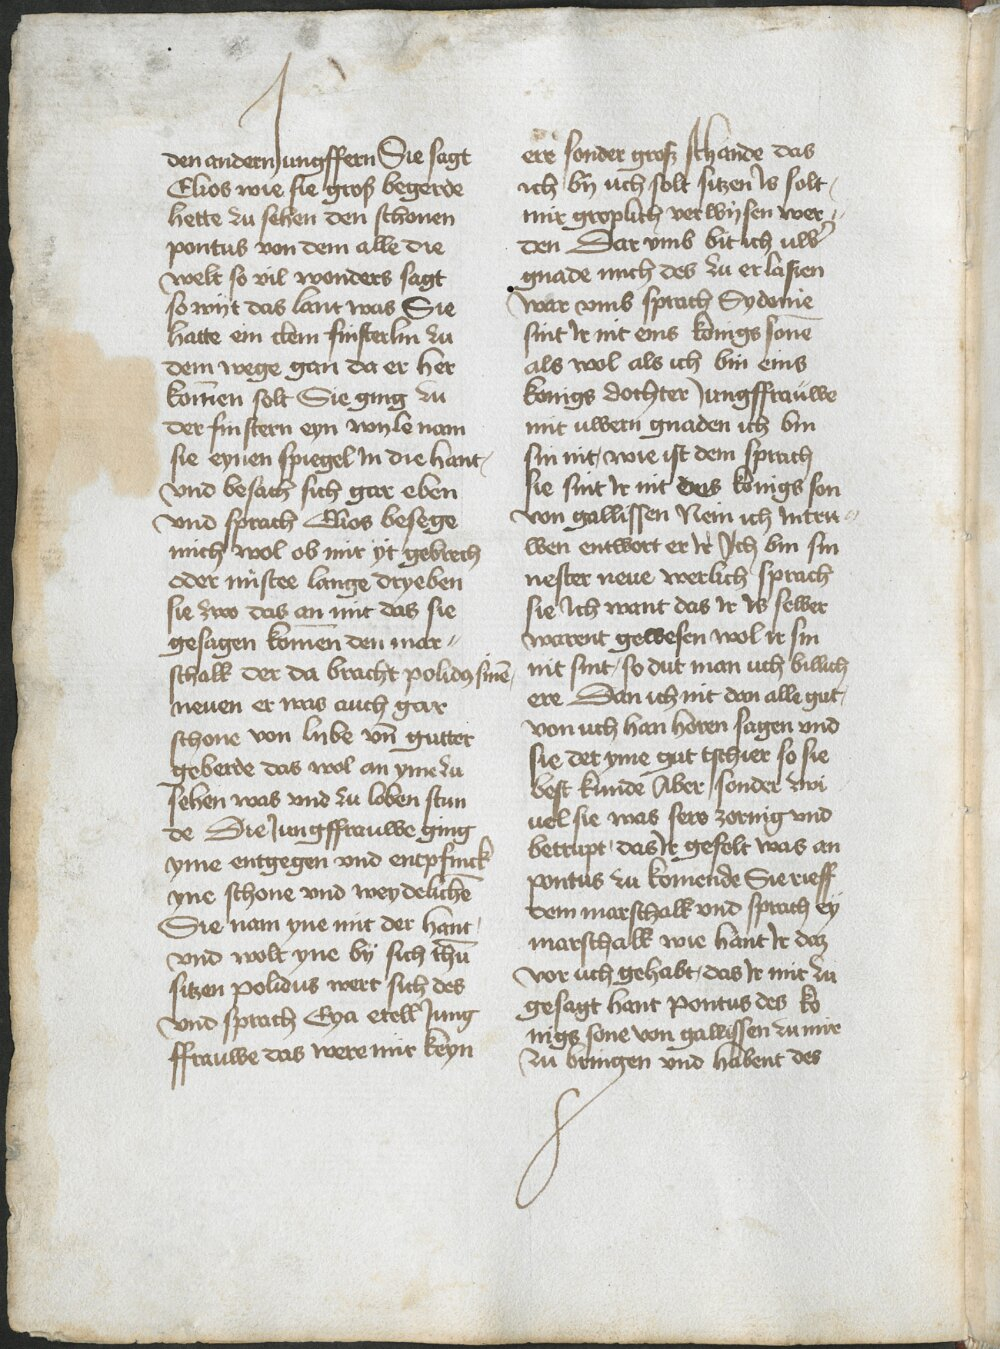 den andern Jungffern Sie sagt
Elios wie sie groß begerde
hette zu sehen den schonen
pontus von dem alle die
welt so vil wonders sagt
so wijt das lant was Sie
hatte ein clein finsterlin zu
dem wege gan da er her
kom̄en solt Sie ging zu
der finstern eyn wyle nam
sie eynen spiegel In die hant
vnd besach sich gar eben
vnd sprach Elios besege
mich wol ob mir yt gebrech
oder mistee lange dryeben
sie zwo das an mit das sie
gesagen kom̄en den mar〃
schalk der da bracht polidus sinē
neuen er was auch gar
schone von lybe vn̄ gutter
geberde das wol an yme zu
sehen was vnd zu loben stun
de Die Jungffrauwe ging
yme entgegen vnd entpfinck
yne schone vnd weydelichē
Sie nam yne mit der hant
vnd wolt yne by sich thū
sitzen polidus wert sich des
vnd sprach Eya etell Jung
ffrauwe das were mir keyn
ere sonder groß schande das
ich by uch solt sitzen Is solt
mir groplich verwysen wer〃
den Dar vmb bit ich uwer
gnade mich des zu erlassen
war vmb sprach Sydonie
sint Ir nit eins konigs sone
als wol als ich bin eins
konigs dochter Jungffrauwe
mit uwern gnaden ich bin
sin nit wie ist dem sprach
sie sint Ir nit des konigs son
von gallissen Nein ich Intru〃
wen entwort er Ir Ich bin sin
nester neue werlich sprach
sie Ich want das Ir Is selber
warent gewesen wol Ir sin
nit sint so dut man uch billich
ere Dan ich nit dan alle gut
von uch han horen sagen vnd
sie det yme gut tschier so sie
best kunde Aber sonder zwi
uel sie was sere zornig vnd
betrupt das Ir gefelt was an
pontus zu komende Sie rieff
dem marschalk vnd sprach ey
marschalk wie hant Ir daz
vor uch gehabt das Ir mir zu
gesagt hant pontus des ko
nigs sone von gallissen zu mir
zu bringen vnd habent des